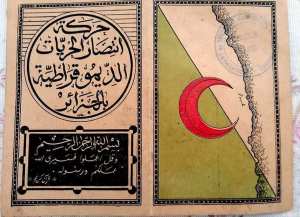 حركة
انتصار الحريات
الديموقراطية
بالجزائر
بسم الله الرحمن الرحيم
وقل اعملوا فسيرى الله
عملكم ورسوله